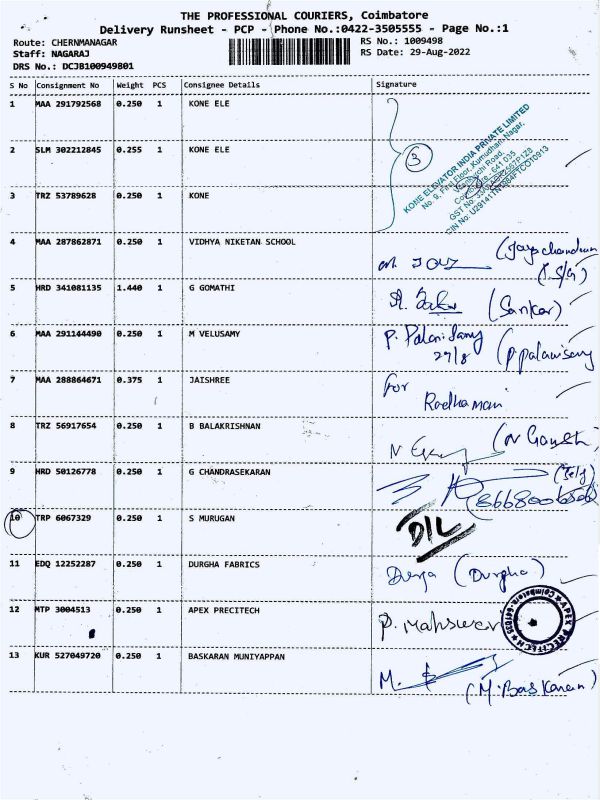 THE PROFESSIONAL COURIERS, Coimbatore
Delivery Runsheet - PCP - Phone No.:0422-3505555 - Page No.:1
Route: CHERNMANAGAR
RS No.: 1009498
Staff: NAGARAJ
RS Date: 29-Aug-2022
DRS No.: DCJB100949801
S No Consignment No Weight PCS Consignee Details Signature
1 MAA 291792568 0.250 1 KONE ELE
KONE ELEVATOR INDIA PRIVATE LIMITED
No. 9, First Floor, Kumudham Nagar,
3
2 SLM 302212845 0.255 1 KONE ELE
3 TRZ 53789628 0.250 1 KONE
4 MAA 287862871 0.250 1 VIDHYA NIKETAN SCHOOL
5 HRD 341081135 1.440 1 G GOMATHI
(Sankar)
6 MAA 291144490 0.250 1 M VELUSAMY
P. Palanisamy (P. palanisamy
29/8
7 MAA 288864671 0.375 1 JAISHREE
for
Radhamani
8 TRZ 56917654 0.250 1 B BALAKRISHNAN
9 HRD 50126778 0.250 1 G CHANDRASEKARAN
10 TRP 6067329 0.250 1 S MURUGAN
D/L
11 EDQ 12252287 0.250 1 DURGHA FABRICS
Durga (Durgha)
12 MTP 3004513 0.250 1 APEX PRECITECH
P. Maheswari
APEX PRECITECH Coimbatore-641035
13 KUR 527049720 0.250 1 BASKARAN MUNIYAPPAN
M. (M. Baskaran)